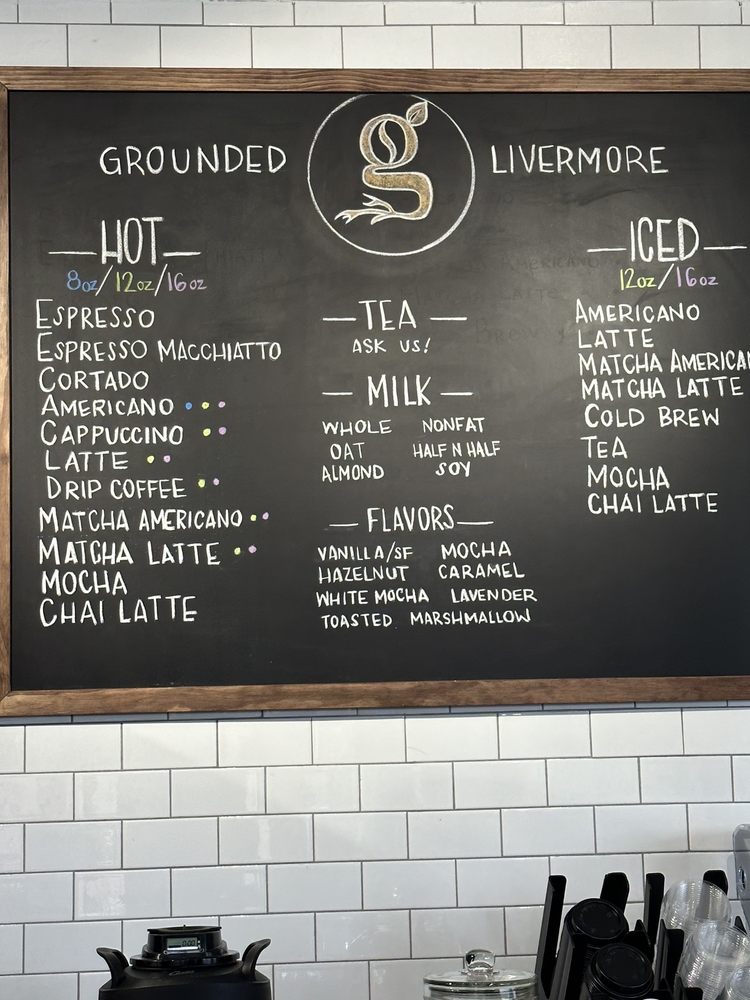 GROUNDED g LIVERMORE
HOT
8oz/12oz/16oz
ESPRESSO
ESPRESSO MACCHIATTO
CORTADO
AMERICANO
CAPPUCCINO
LATTE
DRIP COFFEE
MATCHA AMERICANO
MATCHA LATTE
MOCHA
CHAI LATTE
TEA
ASK US!
MILK
WHOLE NONFAT
OAT HALF N HALF
ALMOND SOY
FLAVORS
VANILLA/SF MOCHA
HAZELNUT CARAMEL
WHITE MOCHA LAVENDER
TOASTED MARSHMALLOW
ICED
12oz/16oz
AMERICANO
LATTE
MATCHA AMERICAN
MATCHA LATTE
COLD BREW
TEA
MOCHA
CHAI LATTE